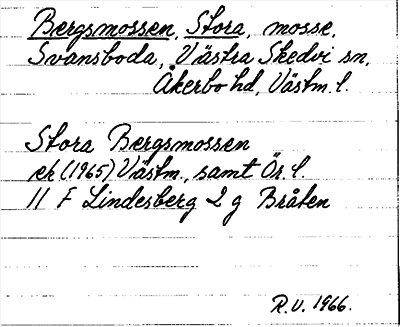 Bergsmossen, Stora, mosse,
Svansboda, Västra Skedvi sn,
Åkerbo hd, Västm. l.
Stora Bergsmossen
ek (1965) Västm., samt Ör. l.
11 F Lindesberg 2 g Bråten
R.V. 1966.